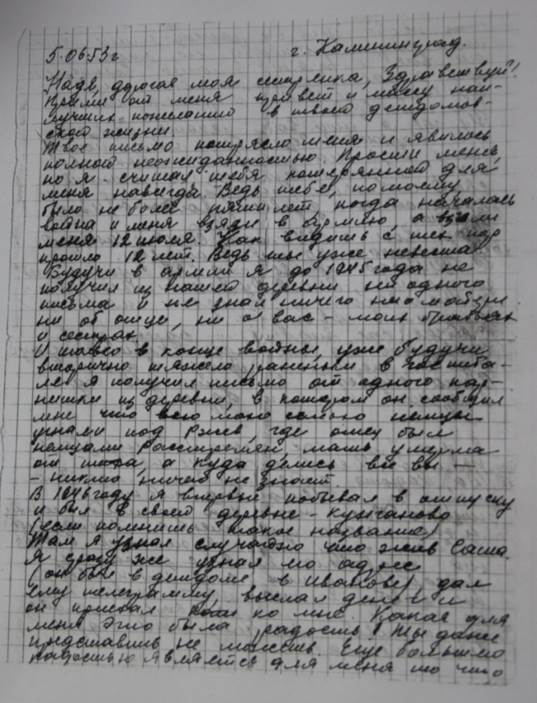 5.06.53 г г. Калининград.
Надя, дорогая моя сестренка, Здравствуй!
Прими от меня привет и массу наи-
лучших пожеланий в твоей детдомов-
ской жизни.
Твое письмо потрясло меня и явилось
полной неожиданностью. Прости меня,
но я считал тебя потерянной для
меня навсегда. Ведь тебе, по моему
было не более пяти лет, когда началась
война и меня взяли в Армию а взяли
меня 12 июля. Как видишь с тех пор
прошло 12 лет. Ведь ты уже невеста.
Будучи в армии я до 1945 года не
получил из нашей деревни ни одного
письма и не знал ничего ни о матери
ни об отце, ни о вас - моих братьях
и сестрах.
И только в конце войны, уже будучи
вторично тяжело раненным в госпита-
ле я получил письмо от одного пар-
нишки из деревни, в котором он сообщил
мне что всю мою семью немцы
угнали под Ржев, где отец был
немцами расстрелян, мать умерла
от тифа, а куда делись все вы —
- никто ничего не знает.
В 1946 году я впервые побывал в отпуску
и был в своей деревне -
(если помнишь такое название)
Там я узнал случайно что жив Саша.
Я сразу же узнал его адрес
(он был в детдоме в Иванове) дал
ему телеграмму, выслал деньги и
он приехал ко мне. Какая для
меня это была радость! Ты даже
представить не можешь. Еще большею
радостью является для меня то что